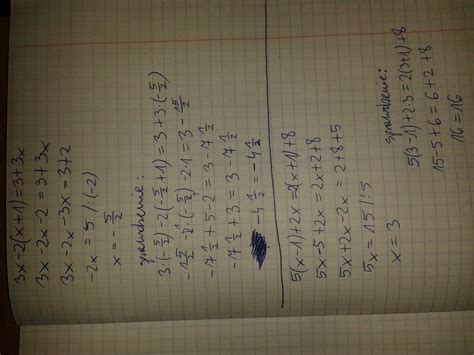 3x-2(x+1)=3+3x
3x-2x-2=3+3x
3x-2x-3x=3+2
-2x=5 /:(-2)
x=-5/2
sprawdzenie:
3·(-5/2)-2(-5/2+1)=3+3·(-5/2)
-15/2-2·(-5/2)-2·1=3-15/2
-7 1/2+5-2=3-7 1/2
-7 1/2+3=3-7 1/2
-4 1/2=-4 1/2
5(x-1)+2x=2(x+1)+8
5x-5+2x=2x+2+8
5x+2x-2x=2+8+5
5x=15 /:5
x=3
sprawdzenie:
5(3-1)+2·3=2(3+1)+8
15-5+6=6+2+8
16=16